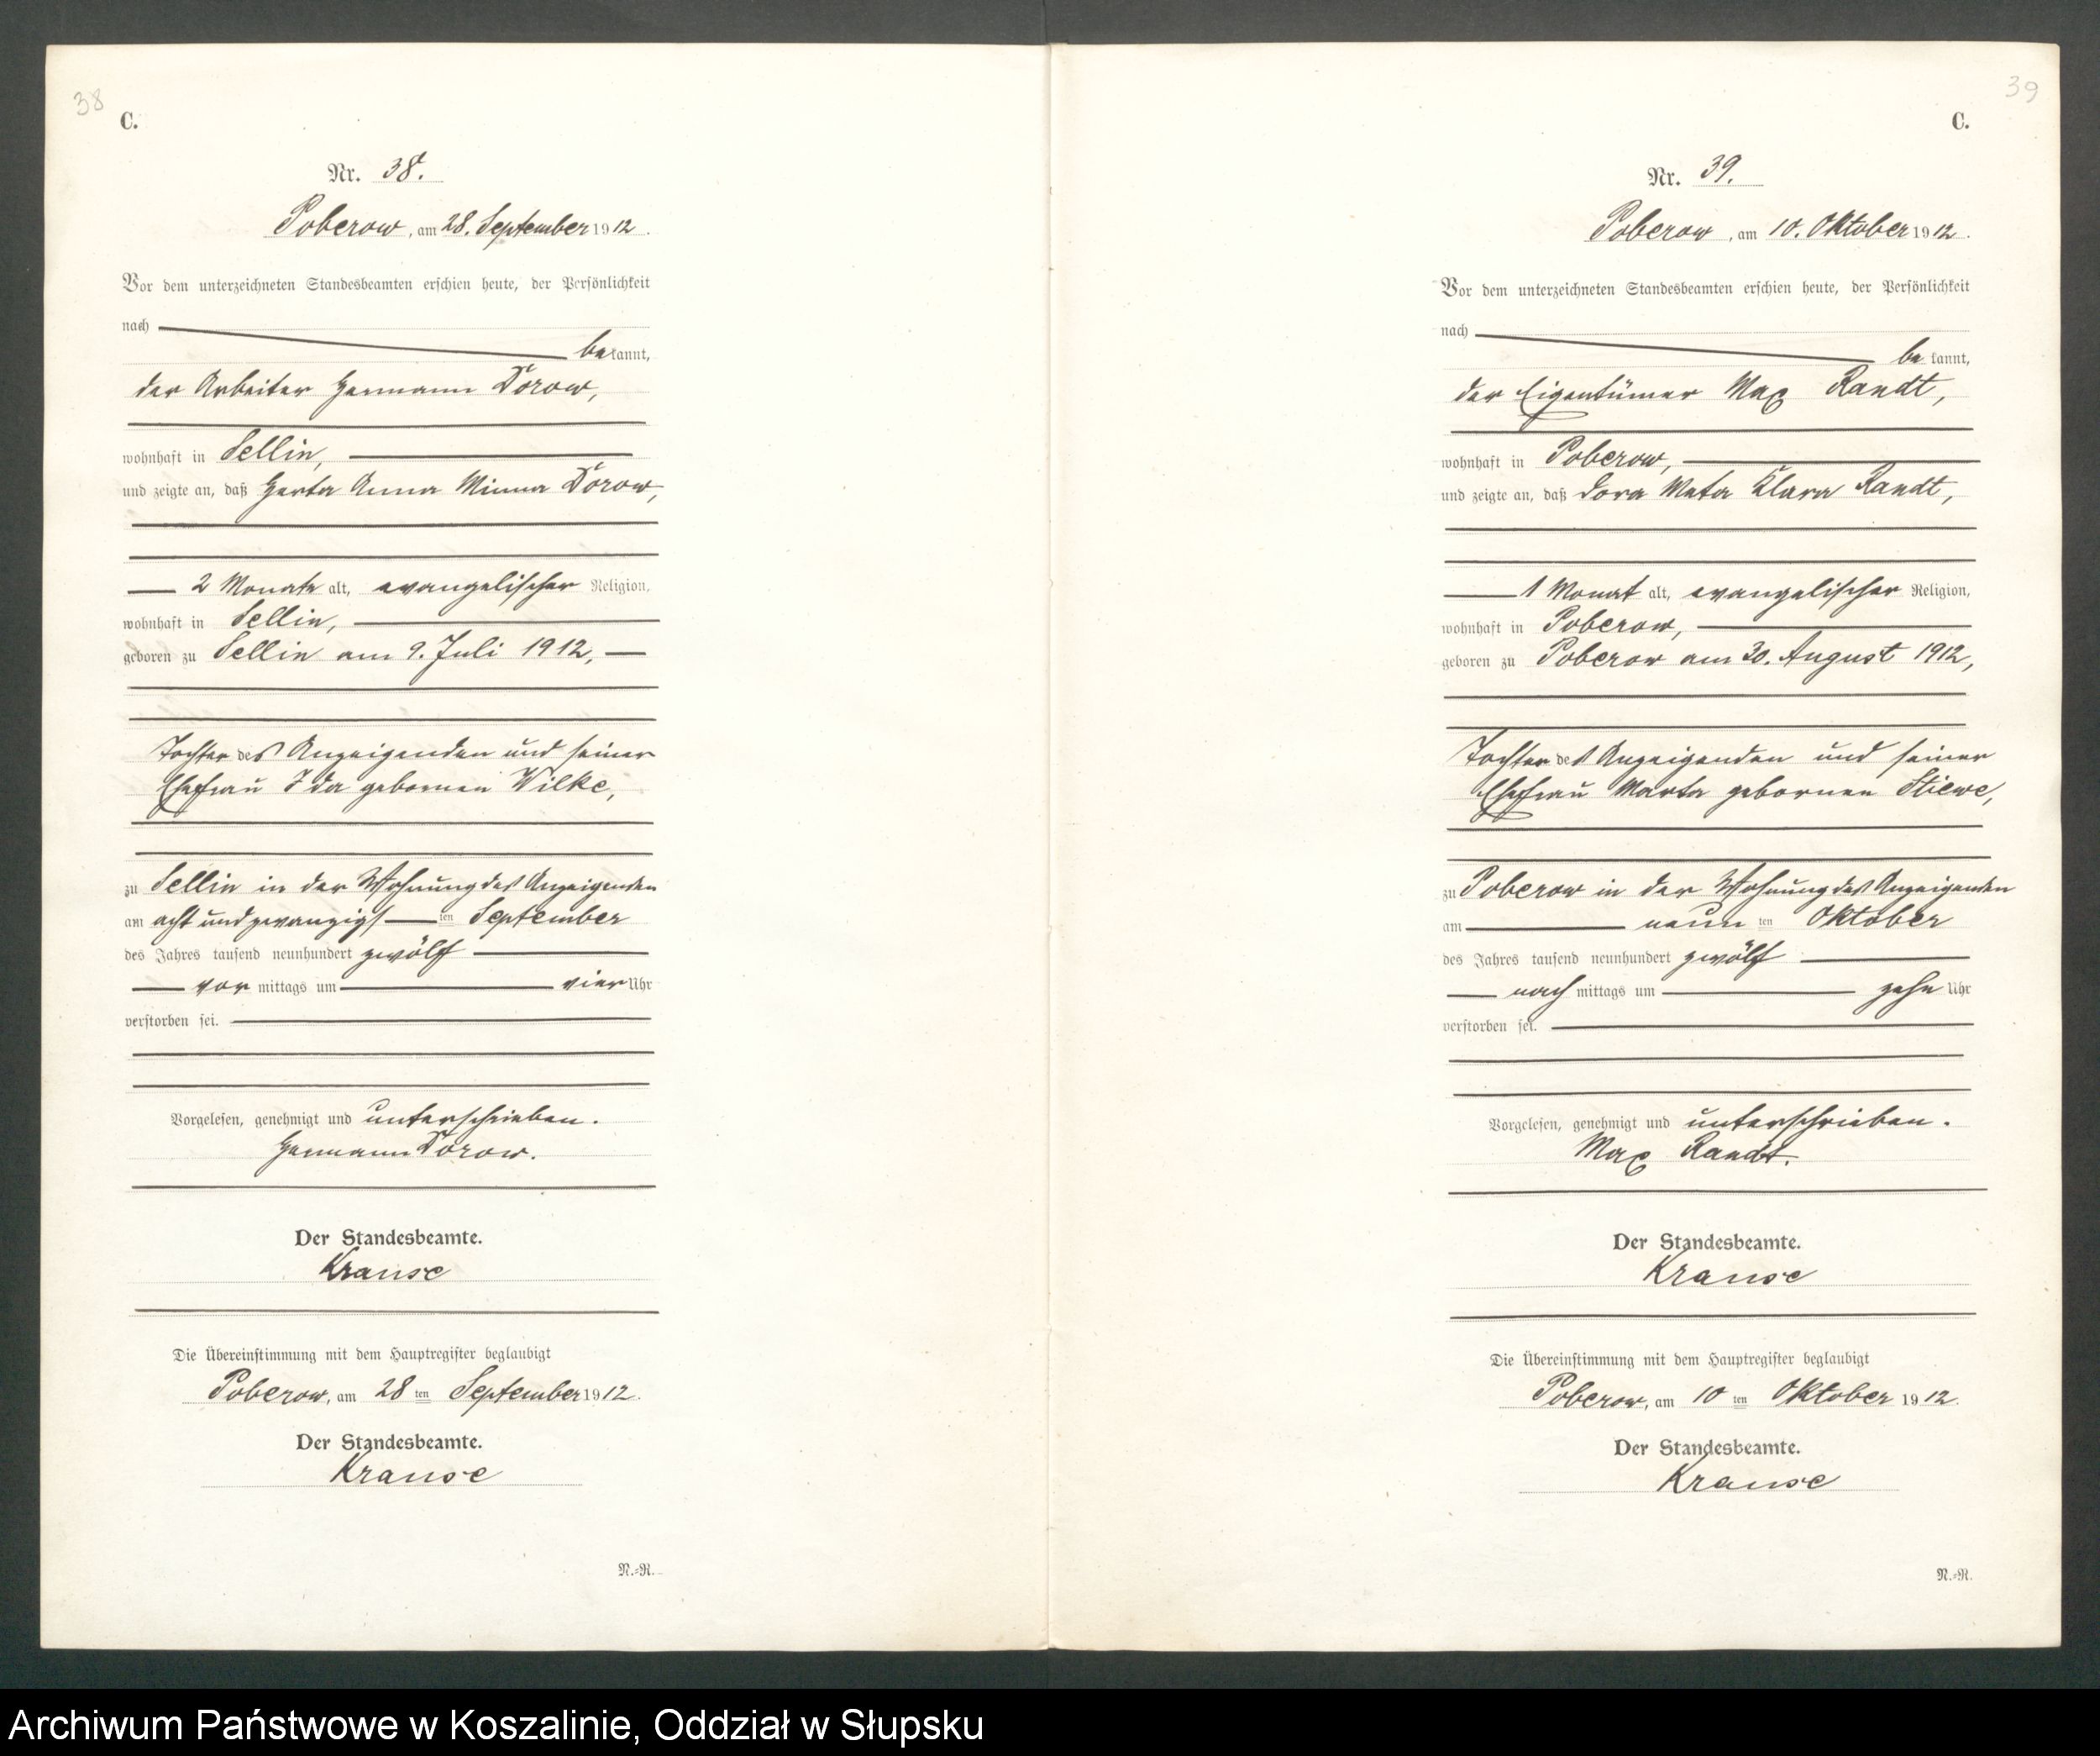 38
C.
Nr. 38.
Poberow, am 28. September 1912.
Vor dem unterzeichneten Standesbeamten erschien heute, der Persönlichkeit
nach
bekannt,
der Arbeiter Hermann Dorow,
wohnhaft in Sellin,
und zeigte an, daß Herta Anna Minna Dorow,
2 Monate alt, evangelischer Religion,
wohnhaft in Sellin,
geboren zu Sellin am 9. Juli 1912,
Tochter des Anzeigenden und seiner
Ehefrau Ida gebornen Wilke,
zu Sellin in der Wohnung des Anzeigenden
am acht und zwanzigsten September
des Jahres tausend neunhundert zwölf
vor mittags um vier Uhr
verstorben sei.
Vorgelesen, genehmigt und unterschrieben.
Hermann Dorow.
Der Standesbeamte.
Krause
Die Übereinstimmung mit dem Hauptregister beglaubigt
Poberow, am 28 ten September 1912.
Der Standesbeamte.
Krause
N.=R.
39
C.
Nr. 39.
Poberow, am 10. Oktober 1912.
Vor dem unterzeichneten Standesbeamten erschien heute, der Persönlichkeit
nach
bekannt,
der Eigentümer Max Randt,
wohnhaft in Poberow,
und zeigte an, daß Dora Meta Klara Randt,
1 Monat alt, evangelischer Religion,
wohnhaft in Poberow,
geboren zu Poberow am 30. August 1912,
Tochter des Anzeigenden und seiner
Ehefrau Marta gebornen Stiewe,
zu Poberow in der Wohnung des Anzeigenden
am neun ten Oktober
des Jahres tausend neunhundert zwölf
nach mittags um zehn Uhr
verstorben sei.
Vorgelesen, genehmigt und unterschrieben.
Max Randt.
Der Standesbeamte.
Krause
Die Übereinstimmung mit dem Hauptregister beglaubigt
Poberow, am 10 ten Oktober 1912.
Der Standesbeamte.
Krause
N.=R.
Archiwum Państwowe w Koszalinie, Oddział w Słupsku